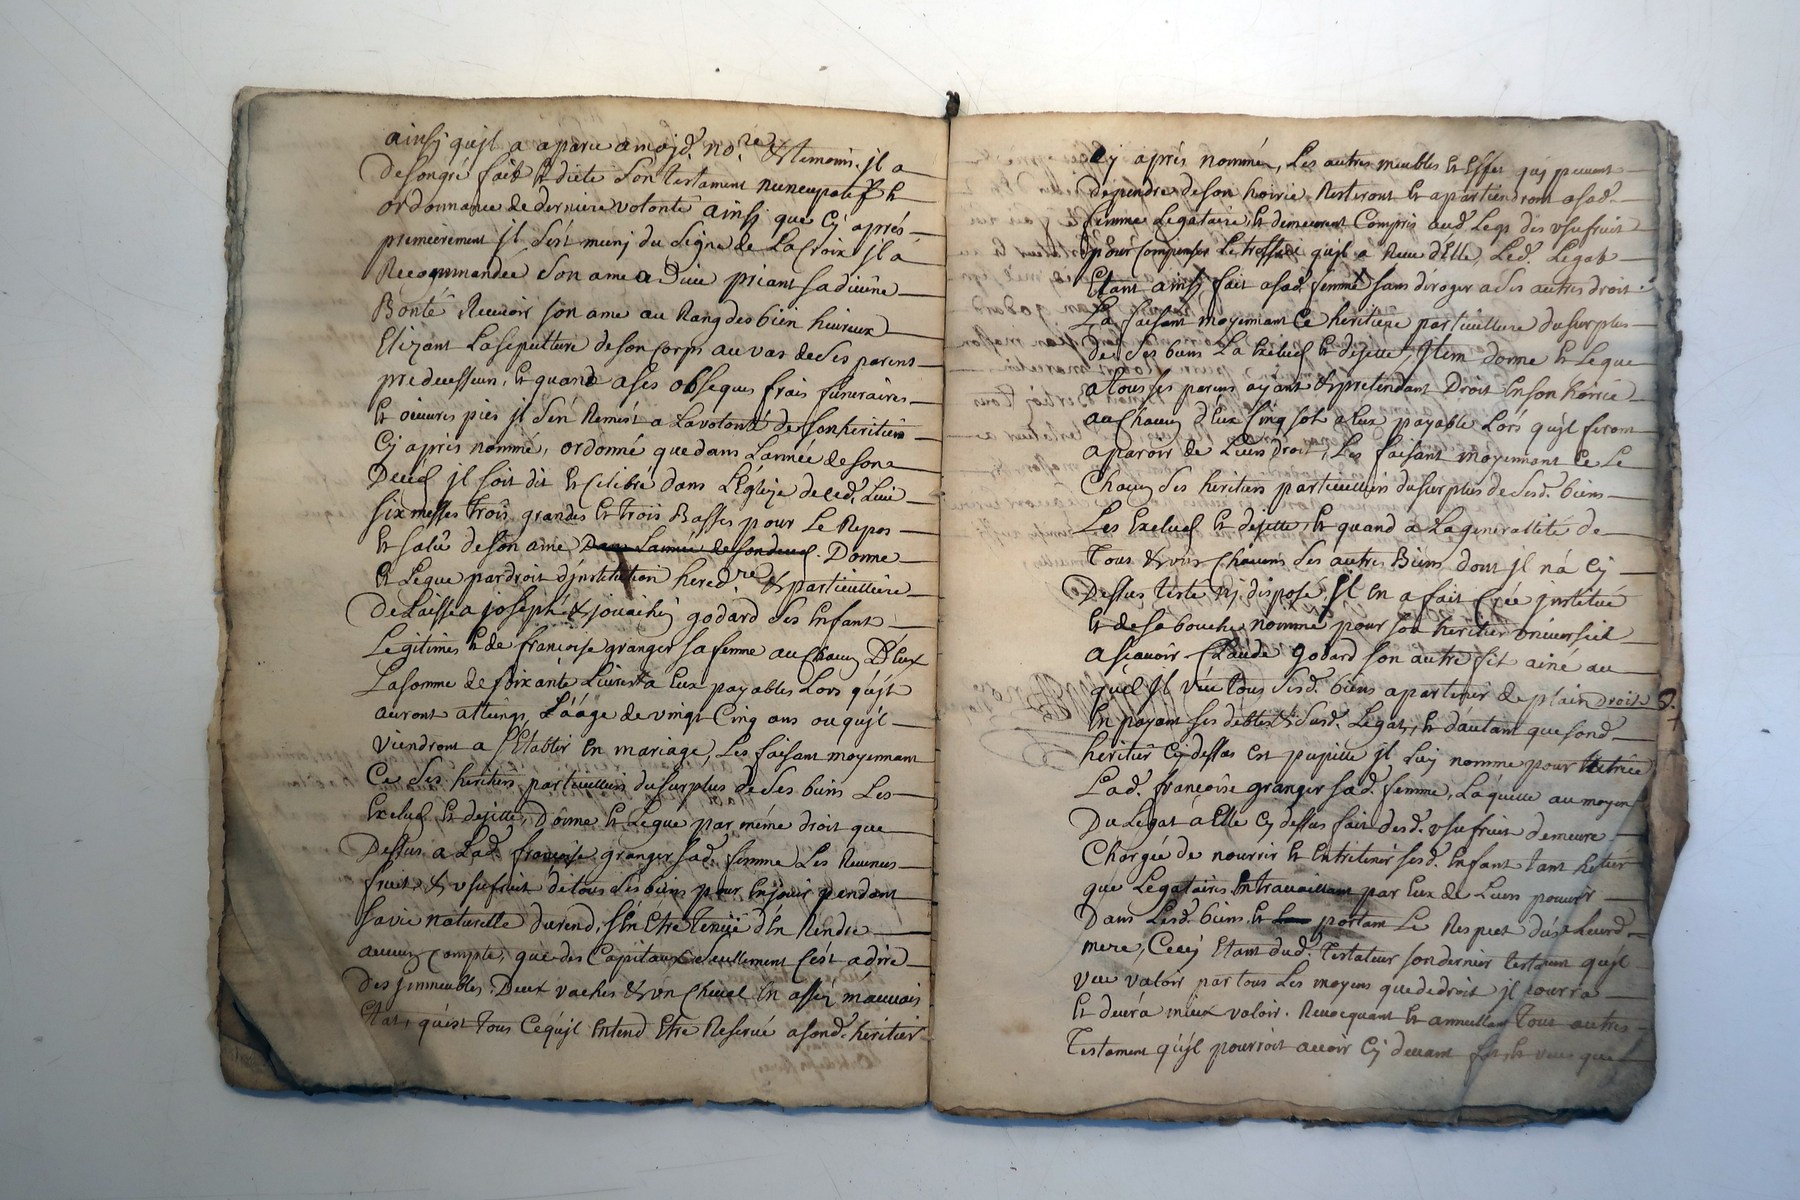 ainsj qu'jl a aparu a mojd. no.re & temoins. jl a
de son gré fait et dicté son testament nuncupatif et
ordonnance de derniere volonté ainsj que Cy aprés
premierement jl s'est munj du signe de La Croix jl a
Recommandée son ame a Dieu priant sa divine
Bonté Recevoir son ame au Rang des bien heureux
Elizant La sepulture de son Corps au vas de ses parens
predecesseurs, et quand a ses obseques frais funeraires
et oeuvres pies jl s'en Remest a La volonté de son heritier
Cy aprés nommé, ordonné que dans L'année de son
Deced jl soit dit et Celebré dans L'Eglize de ced. Lieu
six messes trois grandes et trois Basses pour Le Repos
et salut de son ame Dans L'année de son deced. Donne
et Legue par droit d'jnstitution hered.re & particulliere
Delaisse a joseph & jouachin godard ses enfant
Legitimes et de françoise granger sa femme au Chacun D'Eux
La somme de soixante Livres a Eux payables Lors qu'jl
auront atteins L'ââge de vingt Cinq ans ou qu'jl
viendront a s'Etablir en mariage, Les faisant moyennant
Ce ses heritiers particulliers du surplus de ses biens Les
Exclud et dejette, Donne et Legue par méme droit que
Dessus a Lad. françoise granger sad. femme Les Revenus
fruit & usufruit de tous ses biens pour En jouir pendant
sa vie naturelle durend, s'En Etre tenüe d'En Rendre
aucun Compte, que des Capitaux seullement C'est a dire
Des jmmeubles Deux vaches & un Cheval En assés mauvais
Etat, qu'est tous Ce qu'jl Entend Etre Reservé a sond. heritier
Cy aprés nommé, Les autres meubles et Effet quj peuvent
dependre de son hoirie Resteront et apartiendront a sad.
femme Legataire et demeurent Compris aud. Legs des usufruit
pour Compenser Le trossel qu'jl a Receu d'Elle, Led. Legat
Etant ainsj fait a sad. femme sans deroger a ses autres droit
La faisant moyennant Ce heritiere particulliere du surplus
de ses biens La Exclud et dejette, Jtem donne et Legue
a tous ses parens ayant & pretendant Droit En son hoirie
au Chacun d'Eux Cinq sols a Eux payable Lors qu'jl feront
aparoir de Leurs Droit, Les faisant moyennant Ce Le
Chacun ses heritiers particulliers du surplus de sesd. biens
Les Exclud et dejette, et quand a La generallité de
Tous & uns Chacuns ses autres Biens dont jl n'a Cy
Dessus testé nj disposé, Jl En a fait Créé jnstitué
et de sa bouche nommé pour son heritier universel
a scavoir Claude godard son autre fil ainé au
quel jl veu tous sesd. biens apartenir de plain Droit
En payant ses debtes & susd. Legat, et d'autant que sond.
heritier Cy dessus est pupille jl luy nomme pour tutrice
Lad. françoise granger sad. femme, Laquelle au moyen
Du Legat a Elle Cy dessus fait desd. usufruit demeure
Chargée de nourrir et Entretenir sesd. Enfant tant heritier
que Legataires En travaillant par Eux de Leurs pouvoir
Dans Lesd. biens et portant Le Respect dû a Leurd.
mere, Cecy Etant dud. testateur son dernier testament qu'jl
veu valoir par tous Les moyens que de droit jl pourra
et devra mieux valoir. Revocquant et annullant tous autres
Testament qu'jl pourroit avoir Cy devant fait, et veus que